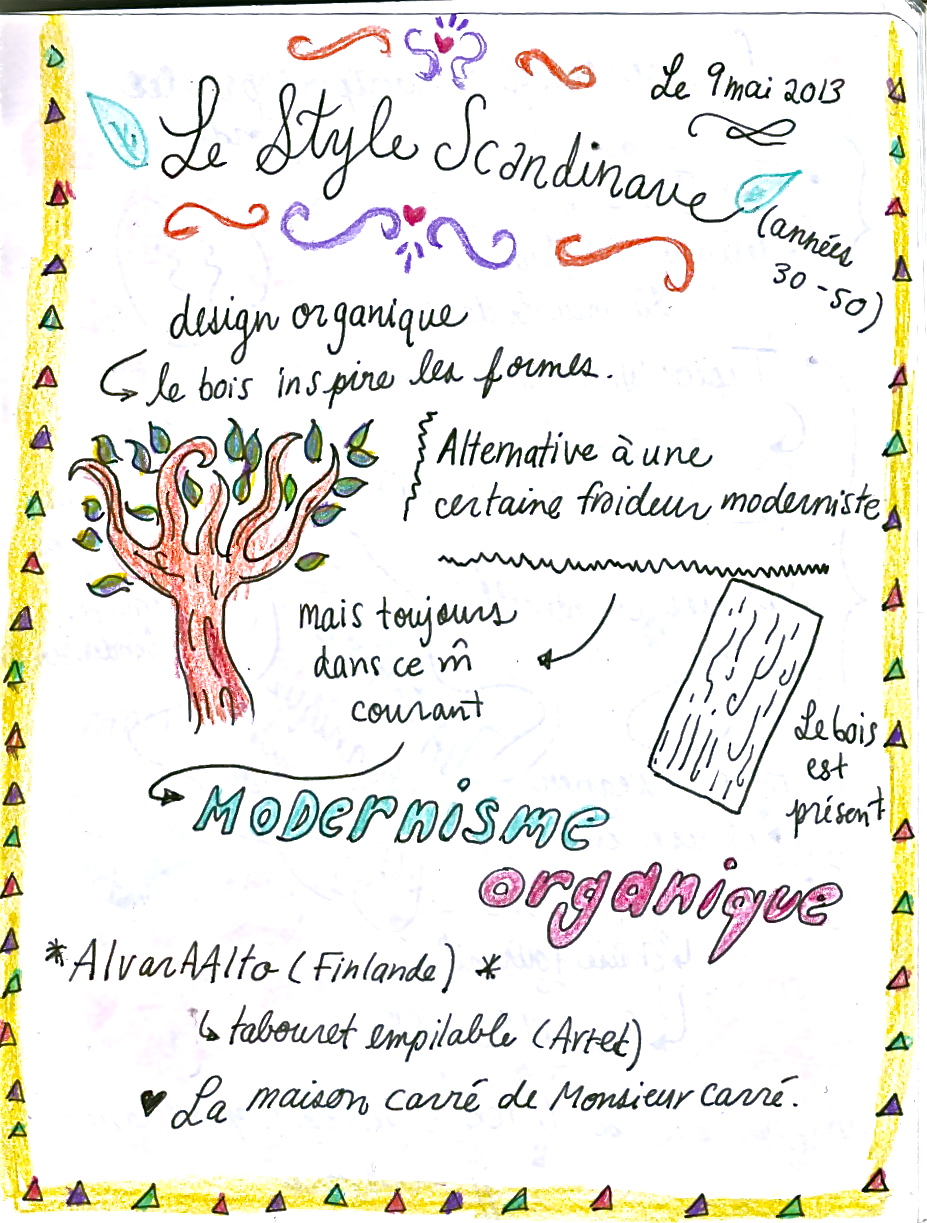 Le 9 mai 2013
Le Style Scandinave
(années
30-50)
design organique
le bois inspire les formes.
Alternative à une
certaine froideur moderniste
mais toujours
dans ce m̂
courant
Le bois
est
présent
Modernisme
organique
*Alvar AAlto (Finlande) *
tabouret empilable (Artet)
La maison carré de Monsieur Carré.